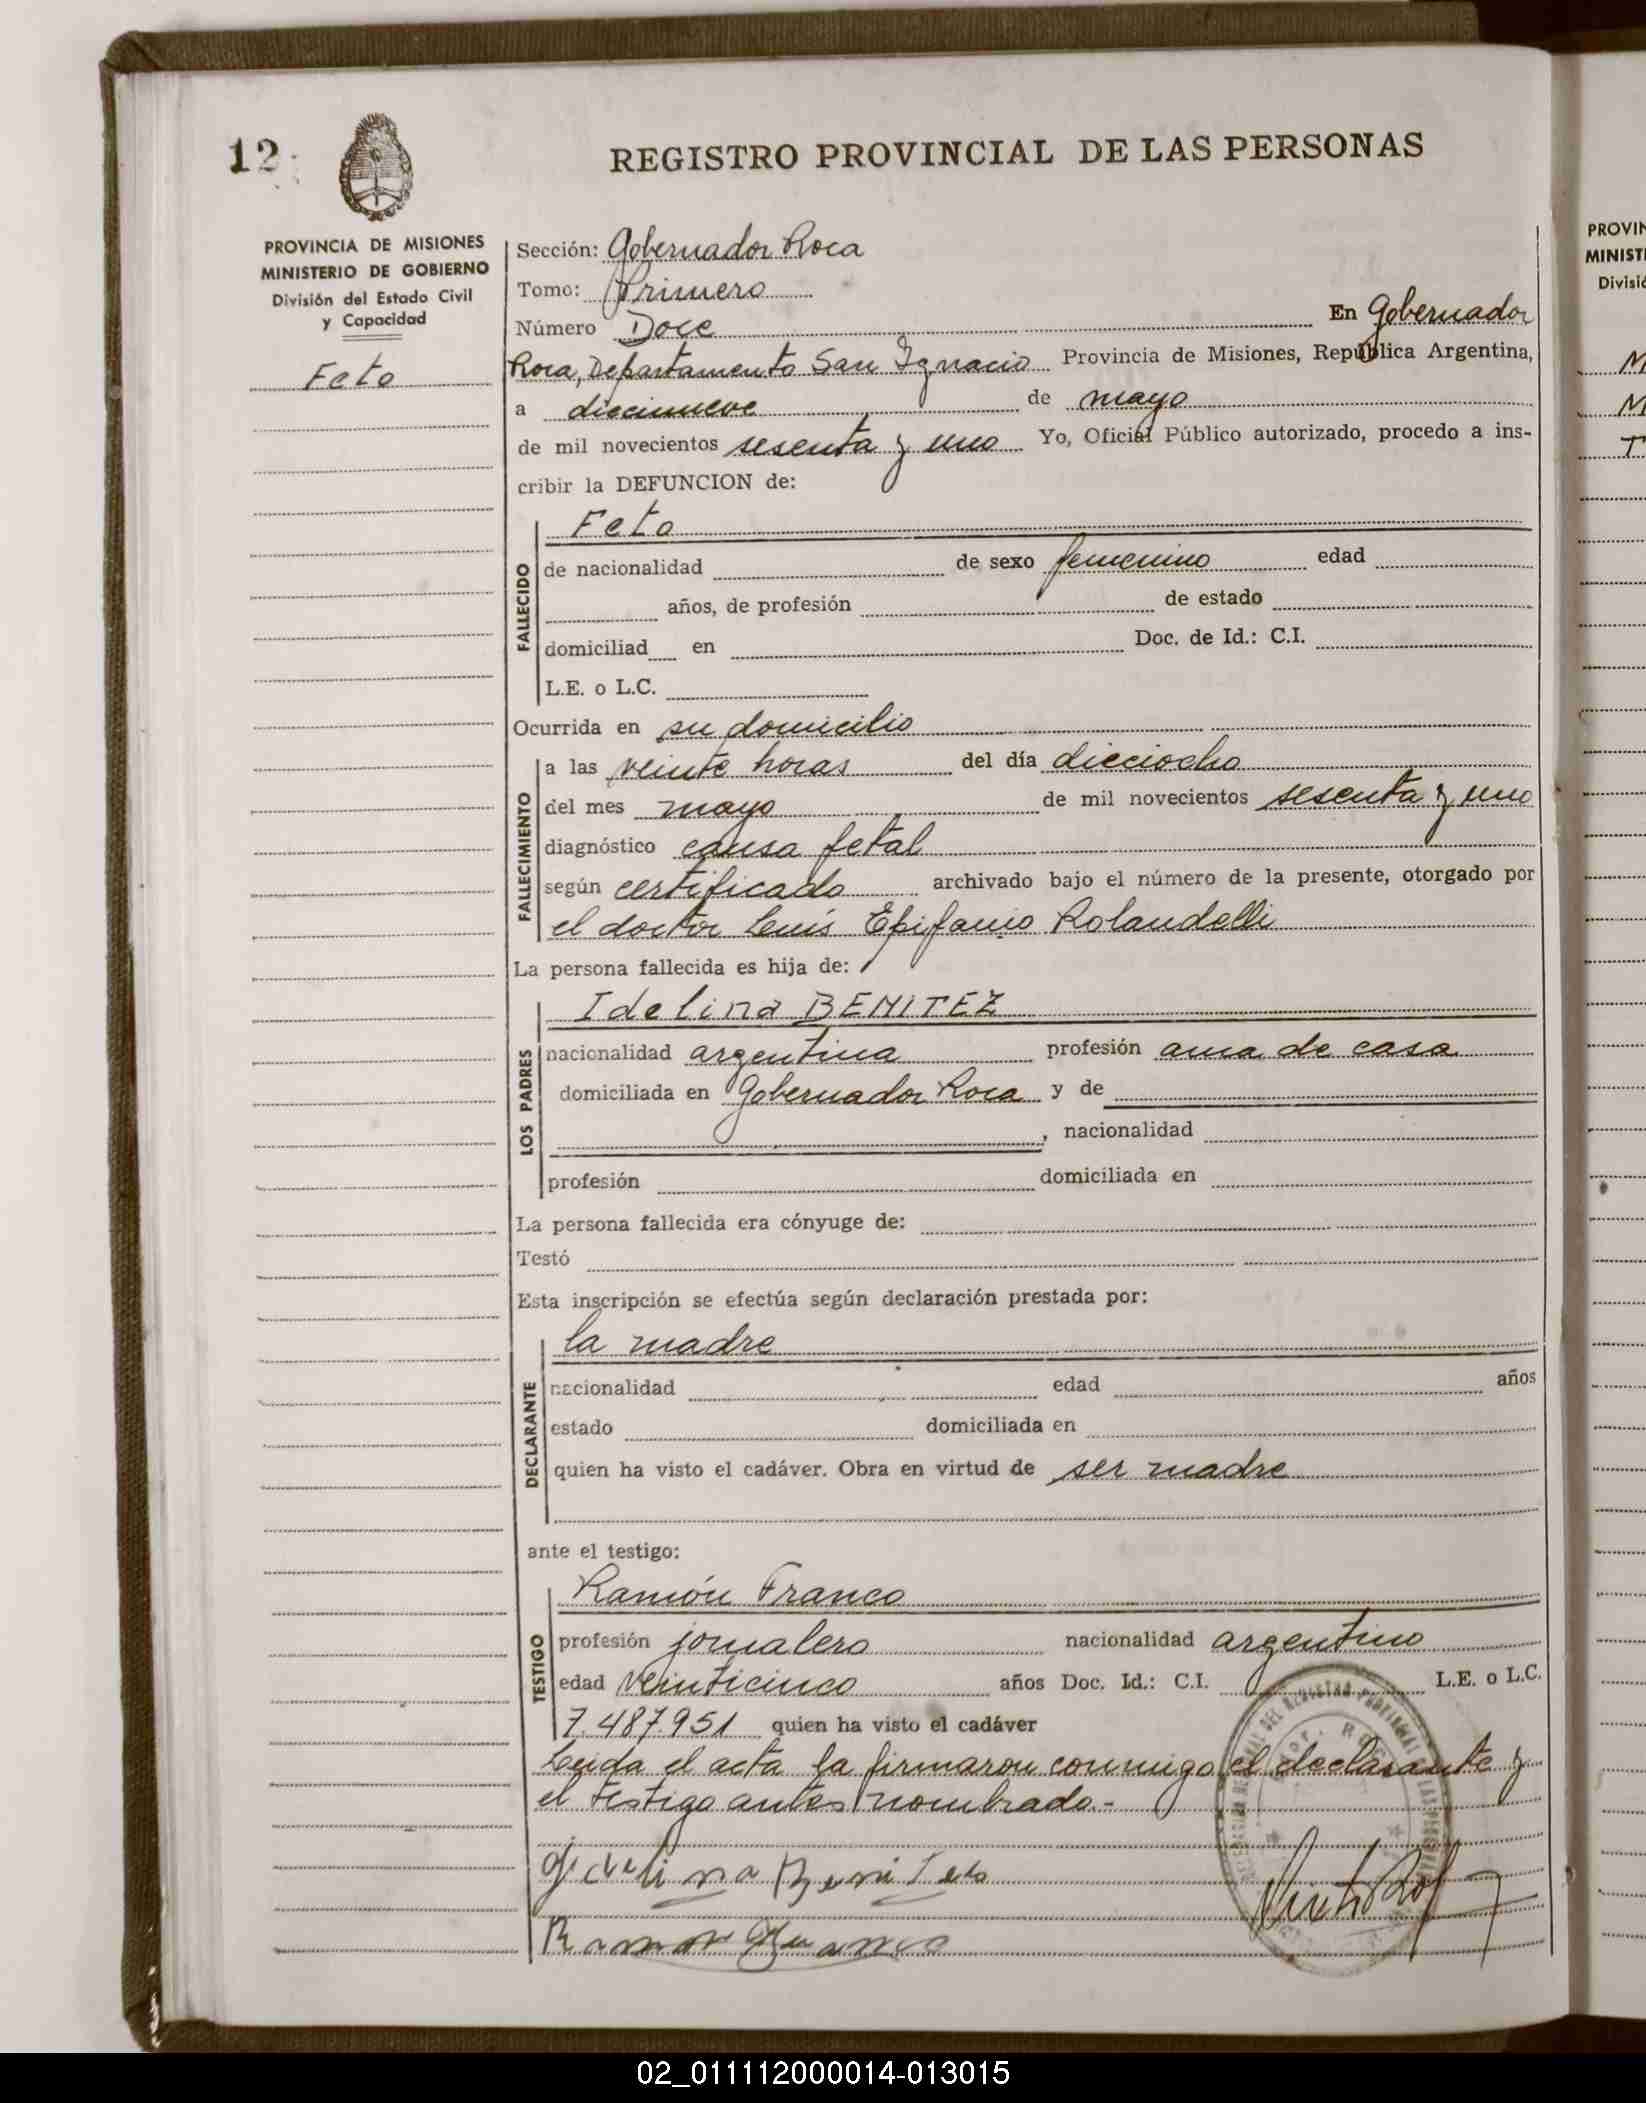 12
REGISTRO PROVINCIAL DE LAS PERSONAS
PROVINCIA DE MISIONES
MINISTERIO DE GOBIERNO
División del Estado Civil
y Capacidad
Feto
Sección: Gobernador Roca
Tomo: Primero
Número Doce En Gobernador
Roca, Departamento San Ignacio Provincia de Misiones, República Argentina,
a diecinueve de mayo
de mil novecientos sesenta y uno Yo, Oficial Público autorizado, procedo a ins-
cribir la DEFUNCION de:
FALLECIDO
Feto
de nacionalidad de sexo femenino edad
años, de profesión de estado
domiciliad en Doc. de Id.: C.I.
L.E. o L.C.
Ocurrida en su domicilio
FALLECIMIENTO
a las veinte horas del día dieciocho
del mes mayo de mil novecientos sesenta y uno
diagnóstico causa fetal
según certificado archivado bajo el número de la presente, otorgado por
el doctor Luis Epifanio Rolandelli
La persona fallecida es hija de:
LOS PADRES
Idelina BENITEZ
nacionalidad argentina profesión ama de casa
domiciliada en Gobernador Roca y de
, nacionalidad
profesión domiciliada en
La persona fallecida era cónyuge de:
Testó
Esta inscripción se efectúa según declaración prestada por:
DECLARANTE
la madre
nacionalidad edad años
estado domiciliada en
quien ha visto el cadáver. Obra en virtud de ser madre
ante el testigo:
TESTIGO
Ramón Franco
profesión jornalero nacionalidad argentino
edad veinticinco años Doc. Id.: C.I. L.E. o L.C.
7.487.951 quien ha visto el cadáver
Leida el acta la firmaron conmigo el declarante y
el testigo antes nombrado.-
Idelina Benites
Ramon Franco
PROVIN
MINIST
Divisió
02_011112000014-013015